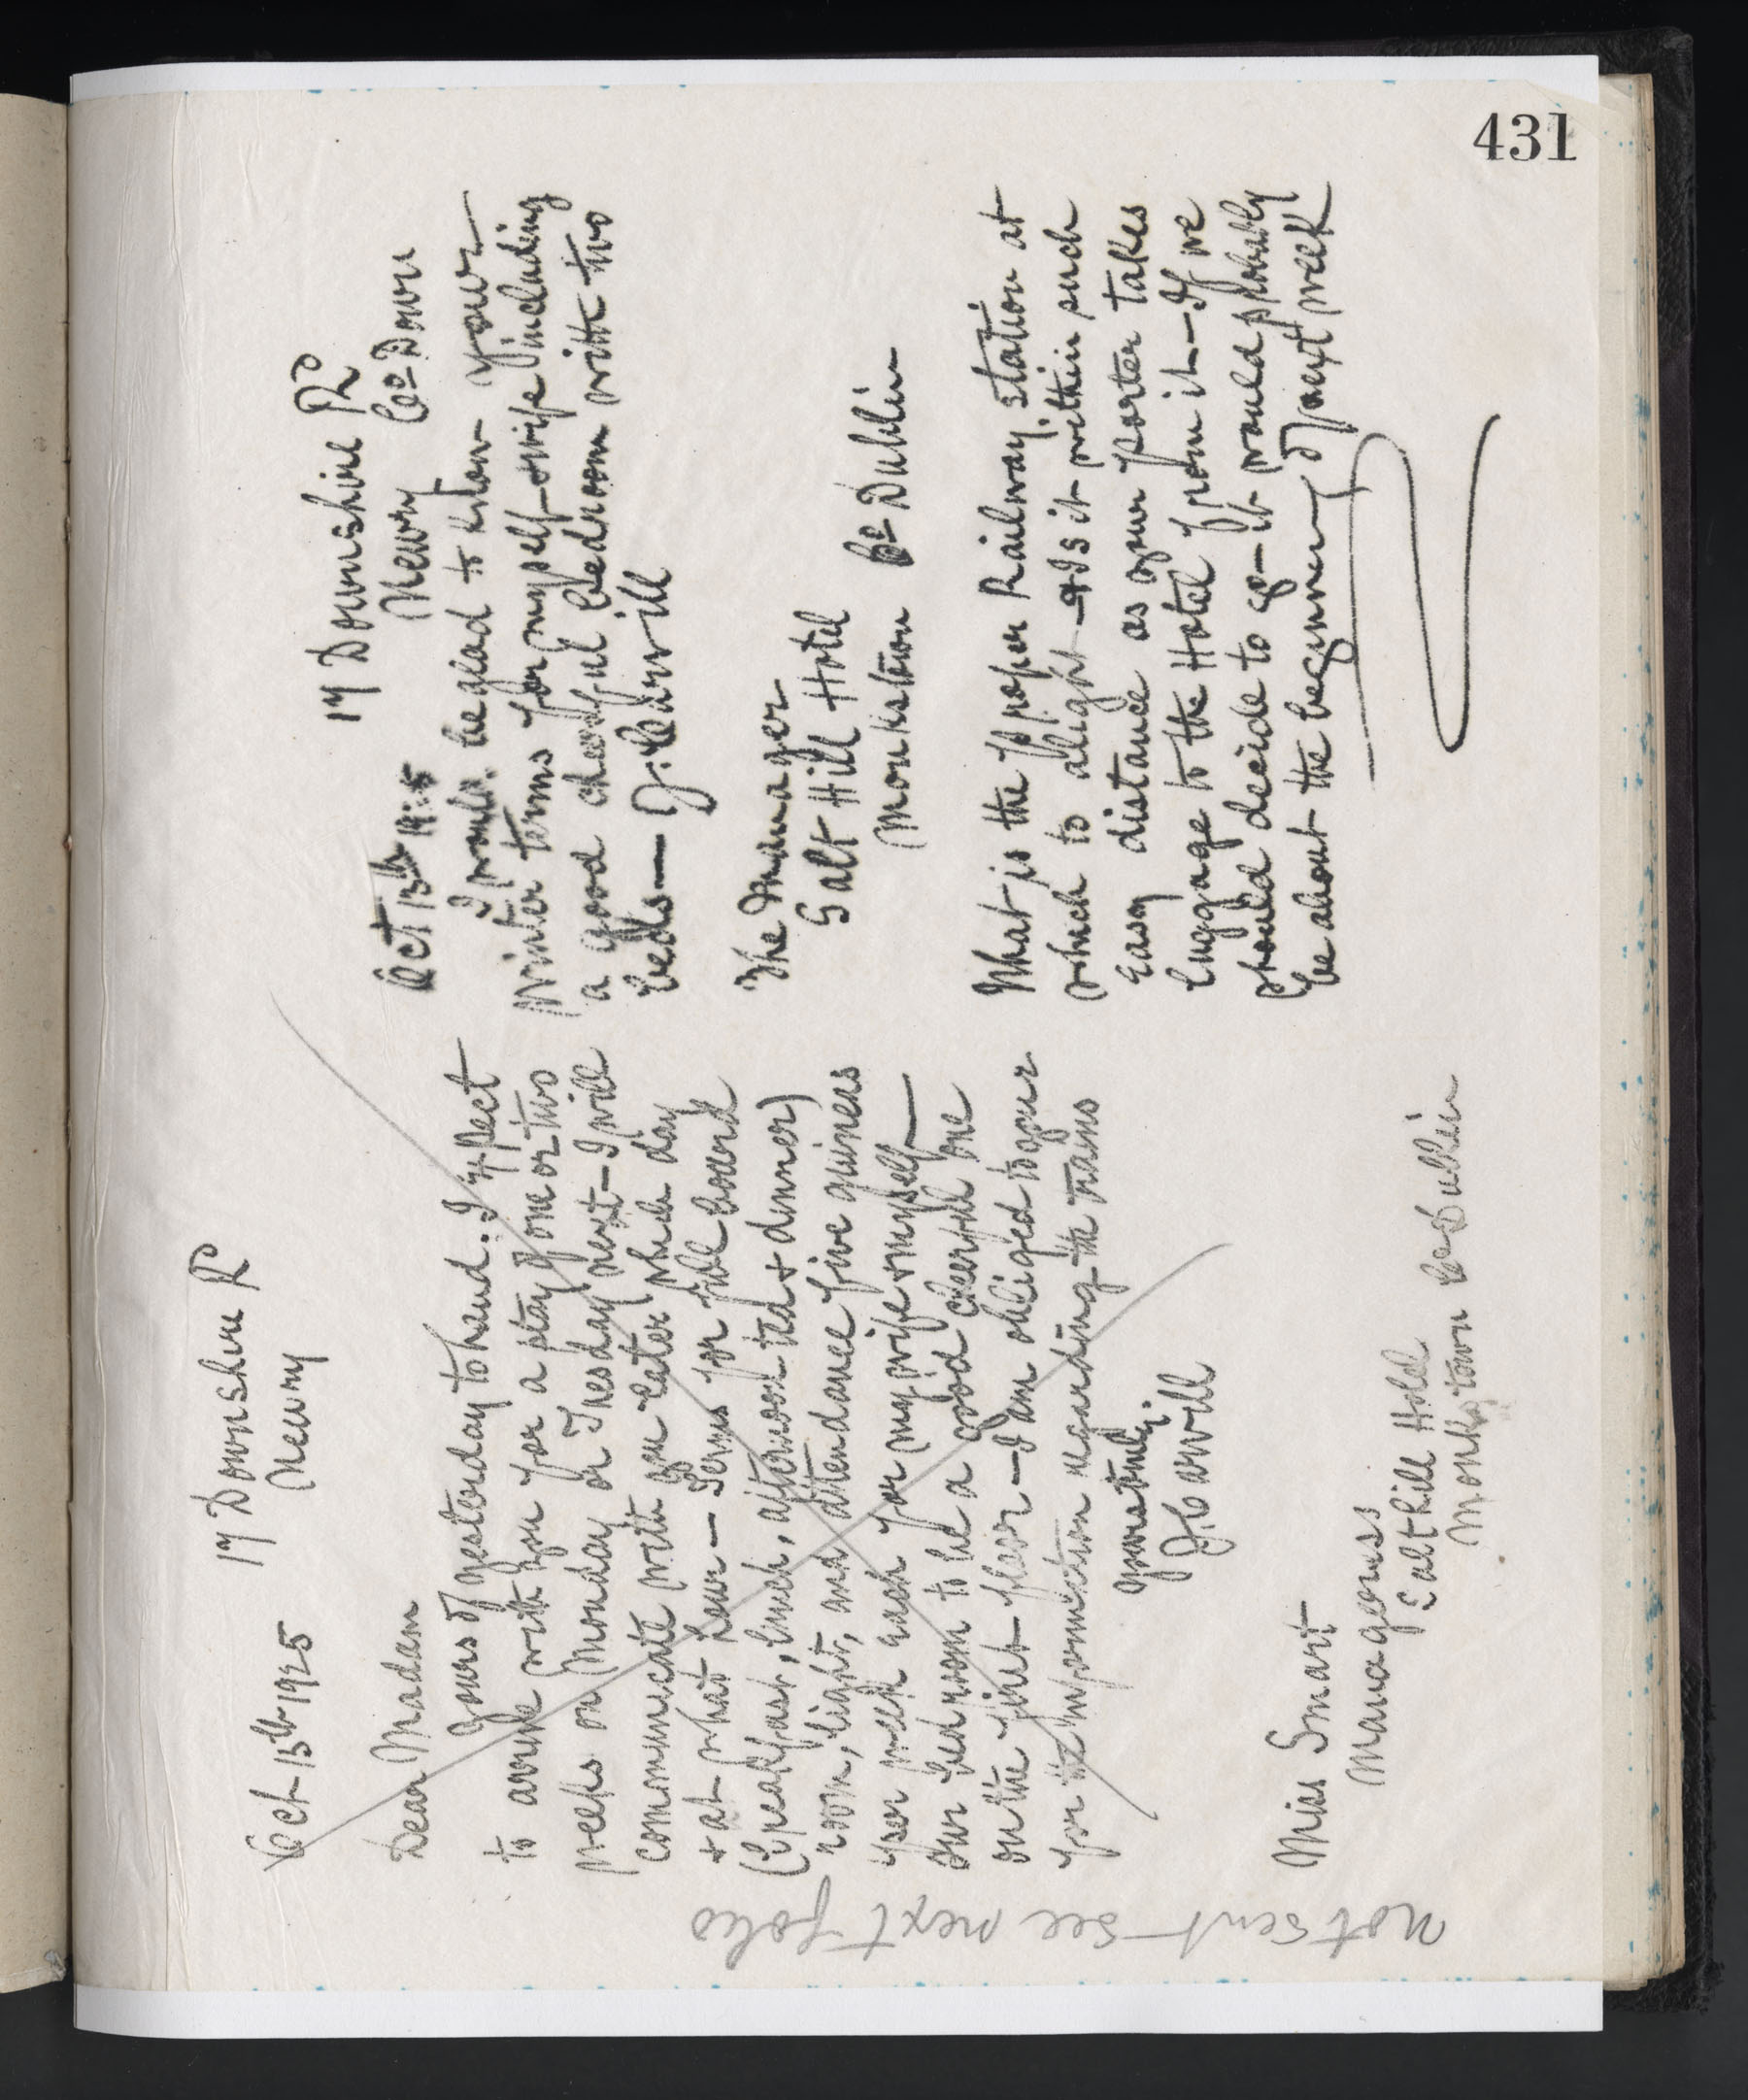 431
Oct 15th 1925 17 Downshire Rd
Newry
Dear Madam
Yours of yesterday to hand. I expect
to arrive with you for a stay of one or two
weeks on Monday or Tuesday next - I will
communicate with you later which day
+ at what hour - Terms for full board
(breakfast, lunch, afternoon tea + dinner)
room, light, and attendance five guineas
per week each for my wife + myself -
Our bedroom to be a good cheerful one
on the first floor - I am obliged to you
for the information regarding the trains
yours truly.
J. Carvill
Miss Smart
Manageress
Salthill Hotel
Monkstown Co Dublin
Not sent see next folio
17 Downshire Rd
Oct 13th 1925 Newry Co Down
I would be glad to know your
winter terms for myself + wife including
a good cheerful bedroom with two
beds - J. Carvill
The Manager
Salt Hill Hotel
Monkstown Co Dublin
What is the proper Railway station at
which to alight - + Is it within such
easy distance as your porter takes
luggage to the Hotel from it - If we
should decide to go - it would probably
be about the beginning of next week